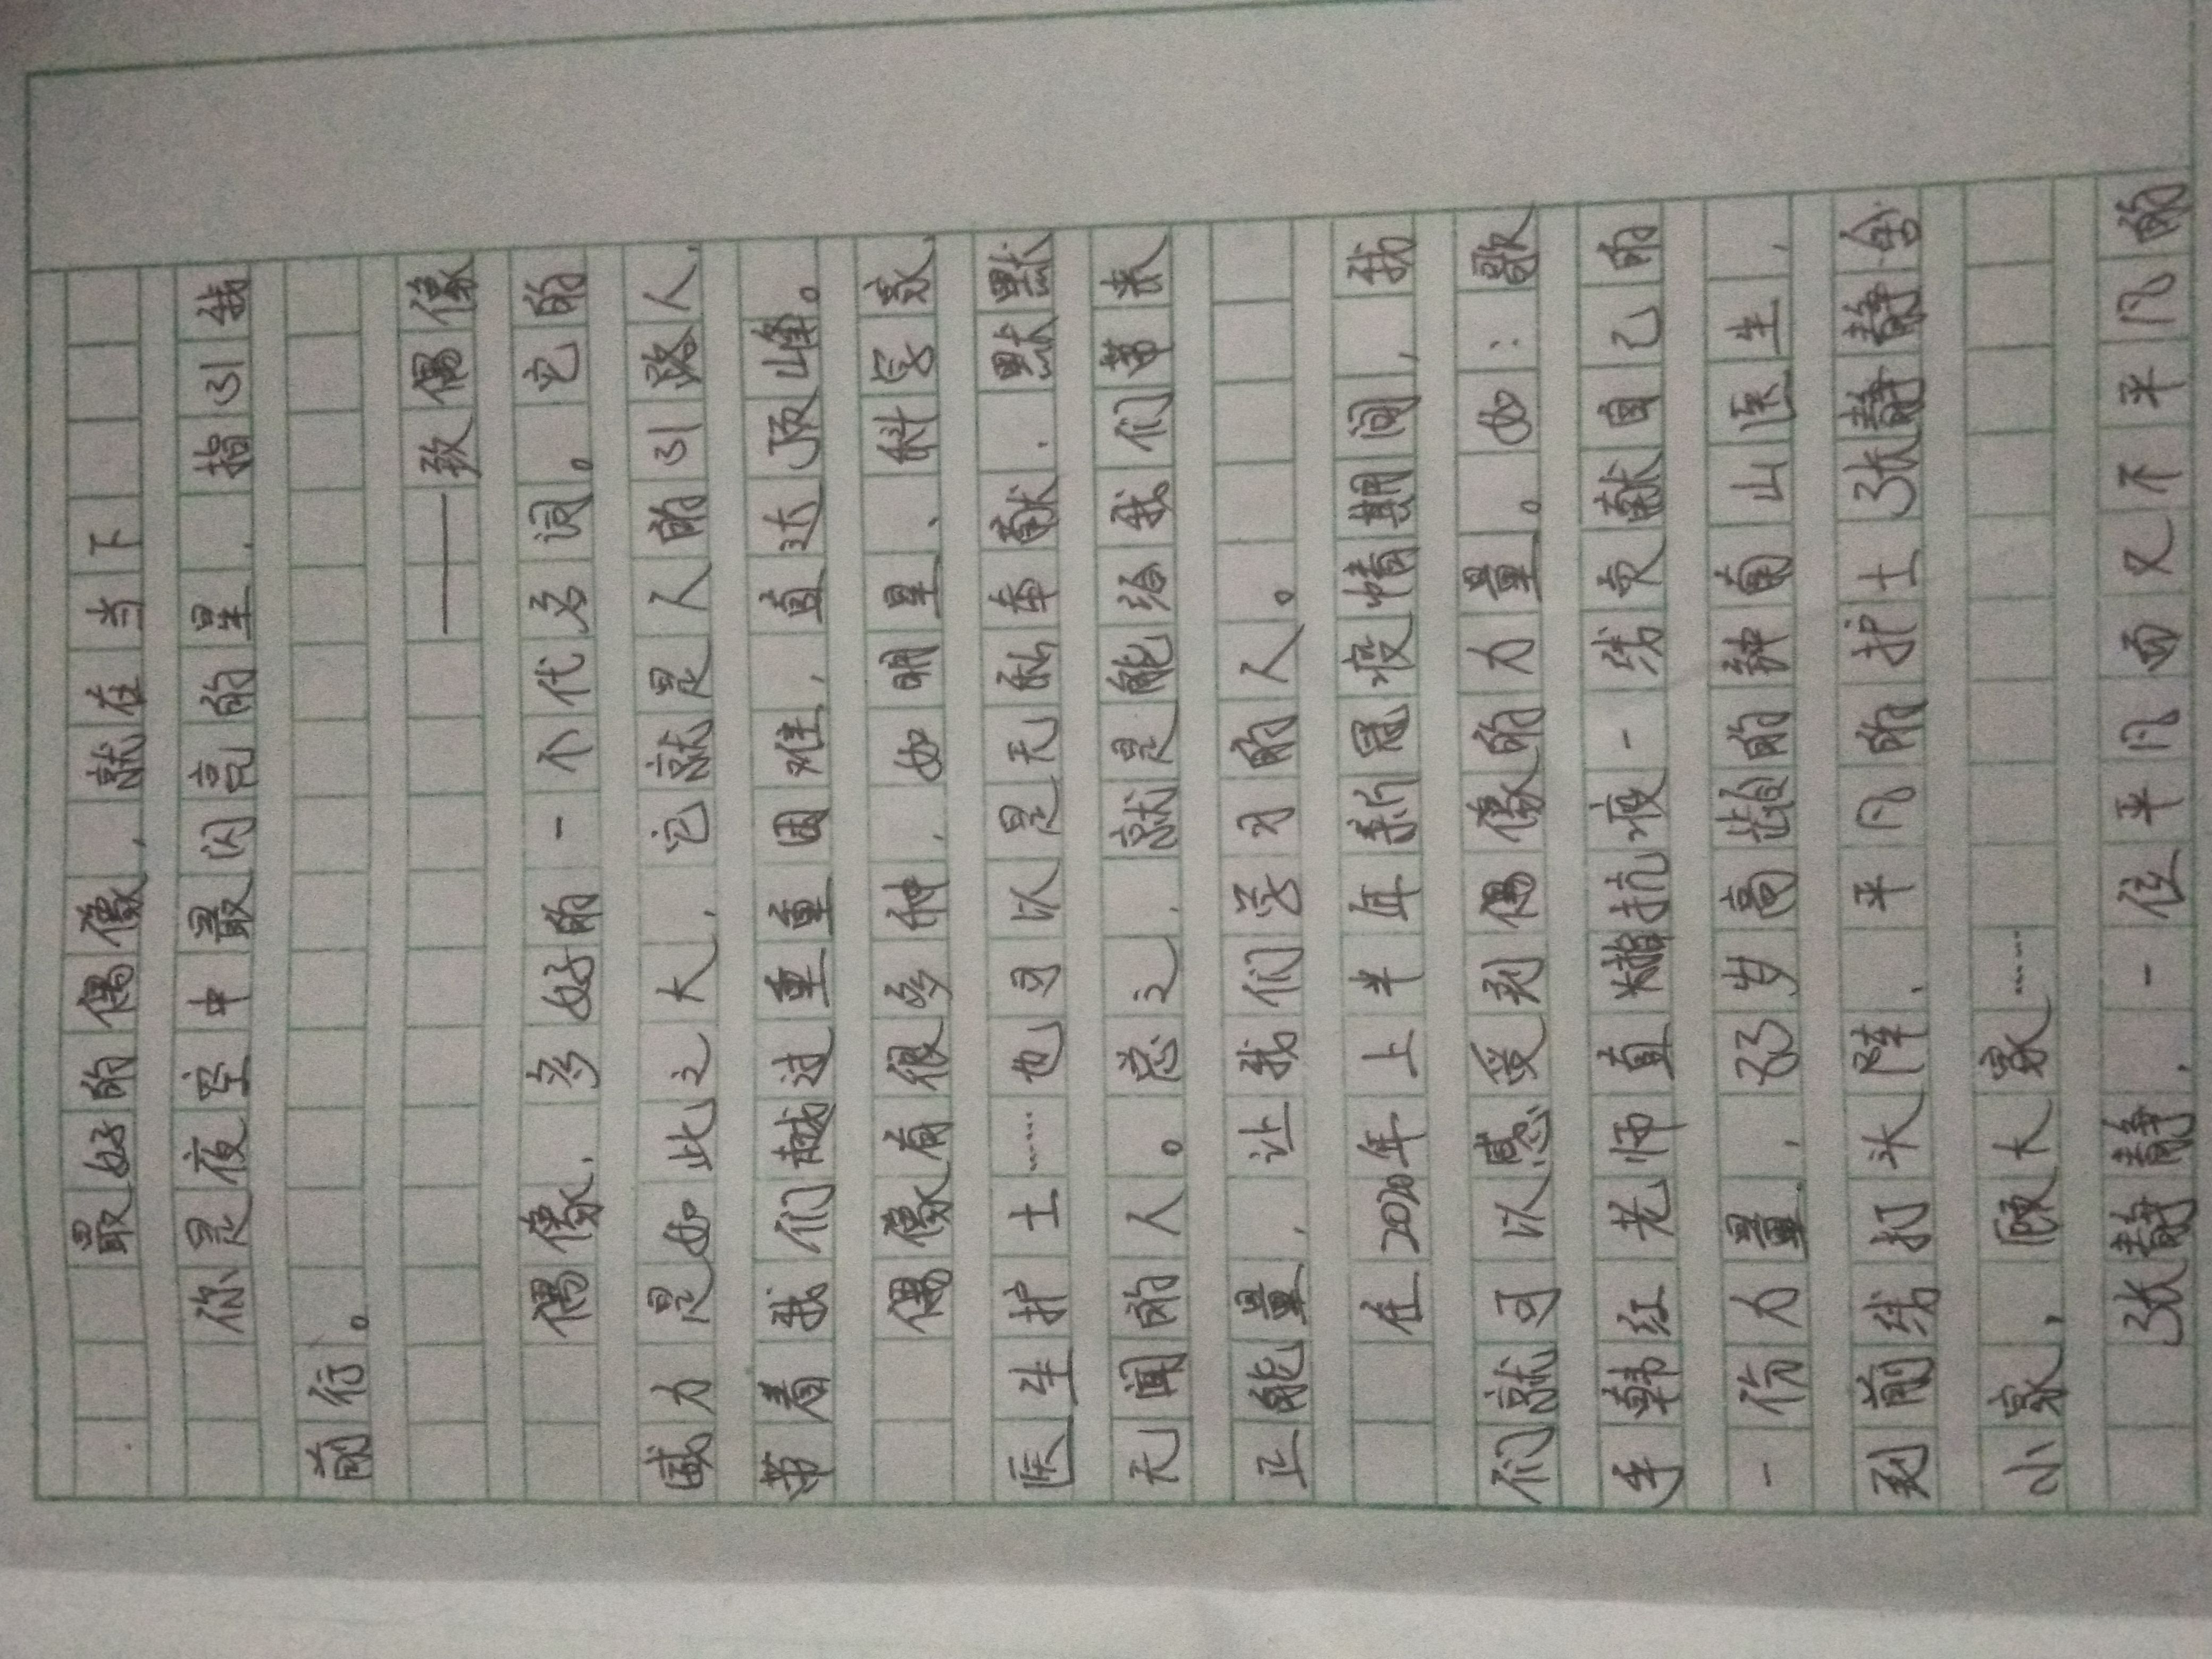 最好的偶像，就在当下
你是夜空中最闪亮的星，指引我
前行。
——致偶像
偶像，多好的一个代名词。它的
威力是如此之大，它就是人的引路人，
带着我们越过重重困难，直达顶峰。
偶像有很多种，如明星、科学家、
医生护士……也可以是无私奉献，默默
无闻的人。总之，就是能给我们带来
正能量，让我们学习的人。
在2020年上半年新冠疫情期间，我
们就可以感受到偶像的力量。如：歌
手韩红老师直播抗疫一线贡献自己的
一份力量，83岁高龄的钟南山医生，
到前线打头阵，平凡的护士张静静舍
小家，顾大家……
张静静，一位平凡而又不平凡的